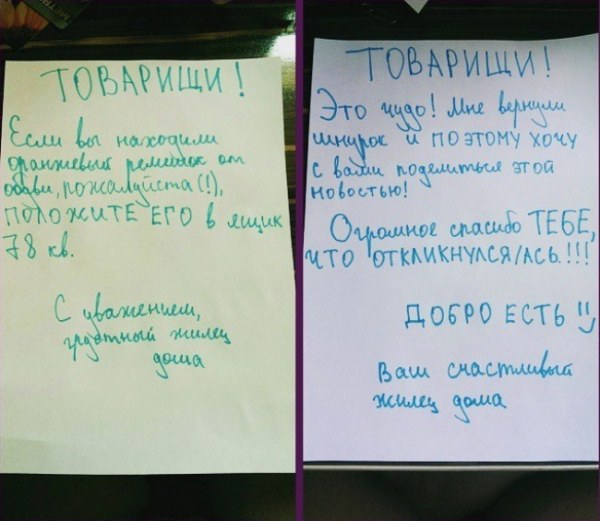 ТОВАРИЩИ!
Если вы находили
оранжевый ремешок от
обуви, пожалуйста(!),
ПОЛОЖИТЕ ЕГО в ящик
78 кв.
С уважением,
грустный жилец
дома
ТОВАРИЩИ!
Это чудо! Мне вернули
шнурок и ПОЭТОМУ ХОЧУ
с вами поделиться этой
новостью!
Огромное спасибо ТЕБЕ,
ЧТО ОТКЛИКНУЛСЯ/АСЬ!!!
ДОБРО ЕСТЬ!!)
Ваш счастливый
жилец дома